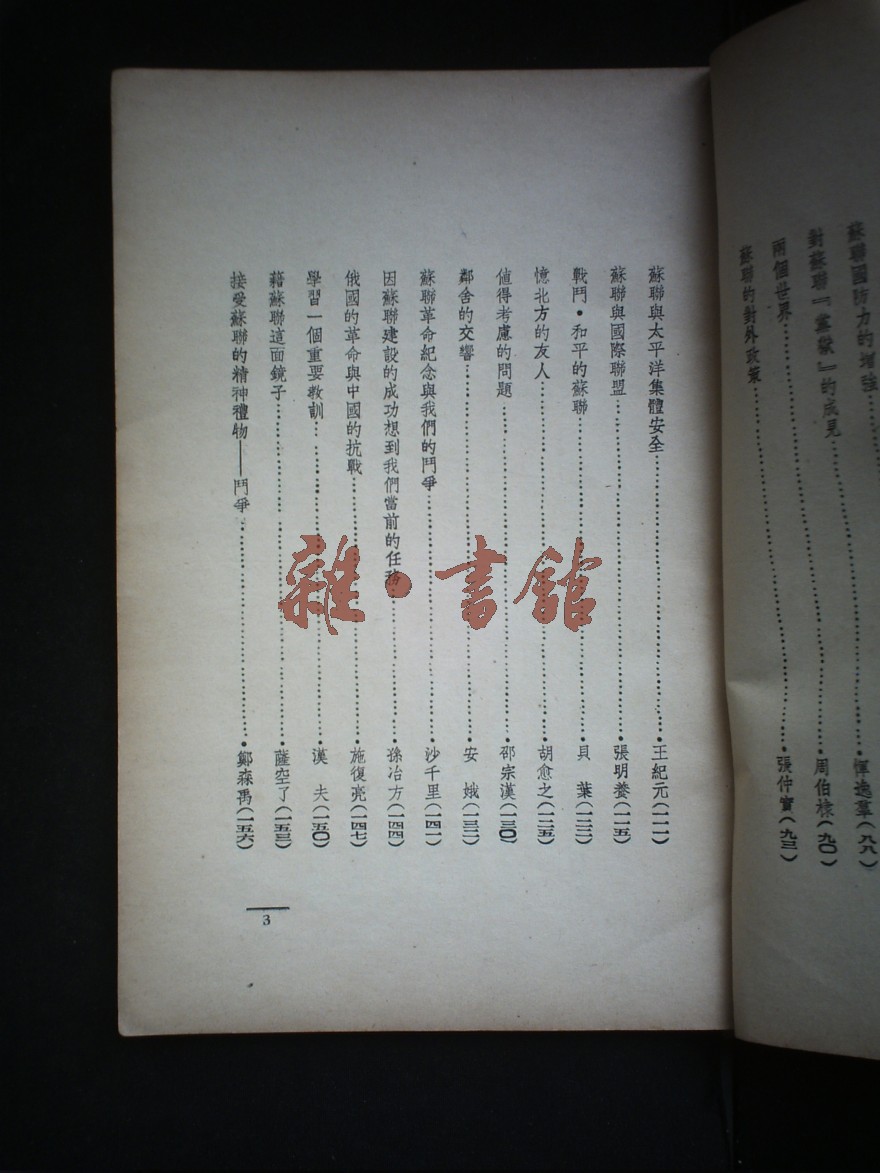 蘇聯國防力的增強……惲逸羣(八八)
對蘇聯『黨獄』的成見……周伯棣(九〇)
兩個世界……張仲實(九三)
蘇聯的對外政策
蘇聯與太平洋集體安全……王紀元(一一一)
蘇聯與國際聯盟……張明養(一一五)
戰鬥•和平的蘇聯……貝 葉(一二二)
憶北方的友人……胡愈之(一二五)
値得考慮的問題……邵宗漢(一三〇)
鄰舍的交響……安 娥(一三二)
蘇聯革命紀念與我們的鬥爭……沙千里(一四一)
因蘇聯建設的成功想到我們當前的任務……孫冶方(一四四)
俄國的革命與中國的抗戰……施復亮(一四七)
學習一個重要教訓……漢 夫(一五〇)
藉蘇聯這面鏡子……薩空了(一五三)
接受蘇聯的精神禮物——鬥爭……鄭森禹(一五六)
3
雜•書館